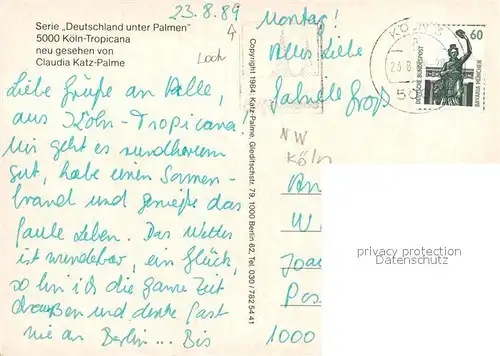 23.8.89
Serie „Deutschland unter Palmen"
5000 Köln-Tropicana
neu gesehen von
Claudia Katz-Palme
Liebe Grüße an Alle,
aus Köln-Tropicana!
Mir geht es rundherum
gut, habe einen Sonnen-
brand und genieße das
faule Leben. Das Wetter
ist wunderbar, ein Glück,
so bin ich die ganze Zeit
draußen und denke fast
nie an Berlin... Bis
Montag!
Alles Liebe
Copyright 1984, Katz-Palme, Gleditschstr. 79, 1000 Berlin 62, Tel. 030/782 54 41
KÖLN
60
DEUTSCHE BUNDESPOST
BAVARIA MÜNCHEN
NW
Köln
An
W.
1000
privacy protection
Datenschutz